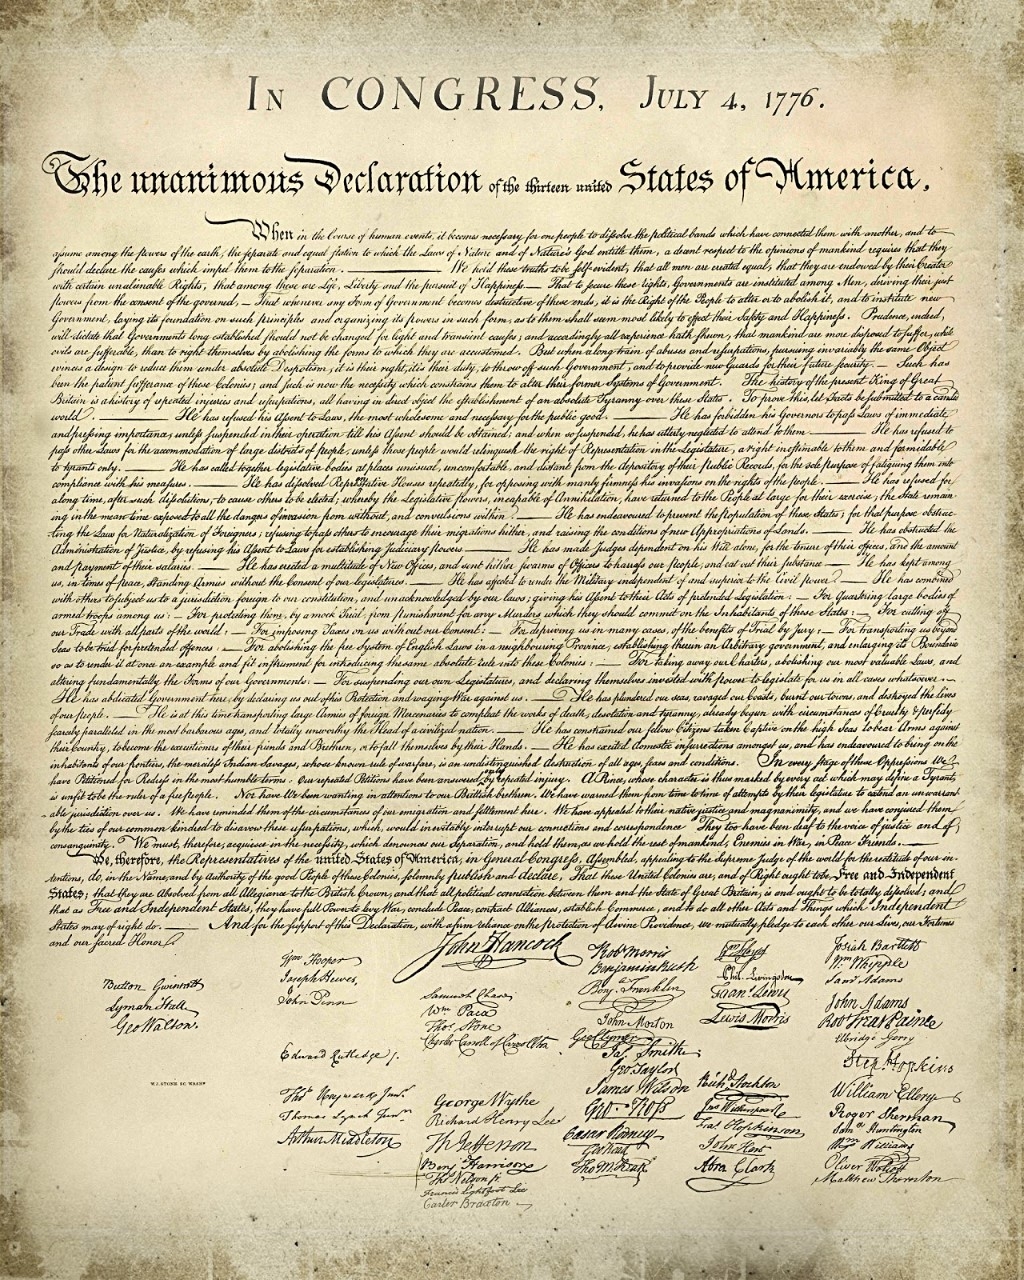 In CONGRESS, July 4, 1776.
The unanimous Declaration of the thirteen united States of America,
When in the Course of human events, it becomes necessary for one people to dissolve the political bands which have connected them with another, and to
assume among the powers of the earth, the separate and equal station to which the Laws of Nature and of Nature's God entitle them, a decent respect to the opinions of mankind requires that they
should declare the causes which impel them to the separation. —— We hold these truths to be self-evident, that all men are created equal, that they are endowed by their Creator
with certain unalienable Rights, that among these are Life, Liberty and the pursuit of Happiness.— That to secure these rights, Governments are instituted among Men, deriving their just
powers from the consent of the governed, — That whenever any Form of Government becomes destructive of these ends, it is the Right of the People to alter or to abolish it, and to institute new
Government, laying its foundation on such principles and organizing its powers in such form, as to them shall seem most likely to effect their Safety and Happiness. Prudence, indeed,
will dictate that Governments long established should not be changed for light and transient causes; and accordingly all experience hath shewn, that mankind are more disposed to suffer, while
evils are sufferable, than to right themselves by abolishing the forms to which they are accustomed. But when a long train of abuses and usurpations, pursuing invariably the same Object
evinces a design to reduce them under absolute Despotism, it is their right, it is their duty, to throw off such Government, and to provide new Guards for their future security.— Such has
been the patient sufferance of these Colonies; and such is now the necessity which constrains them to alter their former Systems of Government. The history of the present King of Great
Britain is a history of repeated injuries and usurpations, all having in direct object the establishment of an absolute Tyranny over these States. To prove this, let Facts be submitted to a candid
world. —— He has refused his Assent to Laws, the most wholesome and necessary for the public good. —— He has forbidden his Governors to pass Laws of immediate
and pressing importance, unless suspended in their operation till his Assent should be obtained; and when so suspended, he has utterly neglected to attend to them. —— He has refused to
pass other Laws for the accommodation of large districts of people, unless those people would relinquish the right of Representation in the Legislature, a right inestimable to them and formidable
to tyrants only. —— He has called together legislative bodies at places unusual, uncomfortable, and distant from the depository of their public Records, for the sole purpose of fatiguing them into
compliance with his measures. —— He has dissolved Representative Houses repeatedly, for opposing with manly firmness his invasions on the rights of the people. —— He has refused for
a long time, after such dissolutions, to cause others to be elected; whereby the Legislative powers, incapable of Annihilation, have returned to the People at large for their exercise; the State remain-
ing in the mean time exposed to all the dangers of invasion from without, and convulsions within. —— He has endeavoured to prevent the population of these States; for that purpose obstruc-
ting the Laws for Naturalization of Foreigners; refusing to pass others to encourage their migrations hither, and raising the conditions of new Appropriations of Lands. —— He has obstructed the
Administration of Justice, by refusing his Assent to Laws for establishing Judiciary powers —— He has made Judges dependent on his Will alone, for the tenure of their offices, and the amount
and payment of their salaries. —— He has erected a multitude of New Offices, and sent hither swarms of Officers to harrass our people, and eat out their substance. —— He has kept among
us, in times of peace, Standing Armies without the Consent of our legislatures. —— He has affected to render the Military independent of and superior to the Civil power. —— He has combined
with others to subject us to a jurisdiction foreign to our constitution, and unacknowledged by our laws; giving his Assent to their Acts of pretended Legislation: — For Quartering large bodies of
armed troops among us: — For protecting them, by a mock Trial, from punishment for any Murders which they should commit on the Inhabitants of these States: — For cutting off
our Trade with all parts of the world: — For imposing Taxes on us without our Consent: — For depriving us in many cases, of the benefits of Trial by Jury: — For transporting us beyond
Seas to be tried for pretended offences: — For abolishing the free System of English Laws in a neighbouring Province, establishing therein an Arbitrary government, and enlarging its Boundaries
so as to render it at once an example and fit instrument for introducing the same absolute rule into these Colonies: — For taking away our Charters, abolishing our most valuable Laws, and
altering fundamentally the Forms of our Governments: — For suspending our own Legislatures, and declaring themselves invested with power to legislate for us in all cases whatsoever. —
He has abdicated Government here, by declaring us out of his Protection and waging War against us. — He has plundered our seas, ravaged our Coasts, burnt our towns, and destroyed the lives
of our people. — He is at this time transporting large Armies of foreign Mercenaries to compleat the works of death, desolation and tyranny, already begun with circumstances of Cruelty & perfidy
scarcely paralleled in the most barbarous ages, and totally unworthy the Head of a civilized nation. — He has constrained our fellow Citizens taken Captive on the high Seas to bear Arms against
their Country, to become the executioners of their friends and Brethren, or to fall themselves by their Hands. — He has excited domestic insurrections amongst us, and has endeavoured to bring on the
inhabitants of our frontiers, the merciless Indian Savages, whose known rule of warfare, is an undistinguished destruction of all ages, sexes and conditions. In every stage of these Oppressions We
have Petitioned for Redress in the most humble terms: Our repeated Petitions have been answered only by repeated injury. A Prince, whose character is thus marked by every act which may define a Tyrant,
is unfit to be the ruler of a free people. Nor have We been wanting in attentions to our Brittish brethren. We have warned them from time to time of attempts by their legislature to extend an unwarrant-
able jurisdiction over us. We have reminded them of the circumstances of our emigration and settlement here. We have appealed to their native justice and magnanimity, and we have conjured them
by the ties of our common kindred to disavow these usurpations, which, would inevitably interrupt our connections and correspondence They too have been deaf to the voice of justice and of
consanguinity. We must, therefore, acquiesce in the necessity, which denounces our Separation, and hold them, as we hold the rest of mankind, Enemies in War, in Peace Friends. ——
We, therefore, the Representatives of the united States of America, in General Congress, Assembled, appealing to the Supreme Judge of the world for the rectitude of our in-
tentions, do, in the Name, and by Authority of the good People of these Colonies, solemnly publish and declare, That these United Colonies are, and of Right ought to be Free and Independent
States; that they are Absolved from all Allegiance to the British Crown, and that all political connection between them and the State of Great Britain, is and ought to be totally dissolved; and
that as Free and Independent States, they have full Power to levy War, conclude Peace, contract Alliances, establish Commerce, and to do all other Acts and Things which Independent
States may of right do. —— And for the support of this Declaration, with a firm reliance on the protection of divine Providence, we mutually pledge to each other our Lives, our Fortunes
and our sacred Honor.
Button Gwinnett
Lyman Hall
Geo Walton.
W. J. STONE SC WASHN
Wm Hooper
Joseph Hewes,
John Penn
Edward Rutledge /.
Thos Heyward Junr.
Thomas Lynch Junr.
Arthur Middleton
John Hancock
Samuel Chase
Wm Paca
Thos Stone
Charles Carroll of Carrollton
George Wythe
Richard Henry Lee
Th Jefferson
Benj Harrison
Thos Nelson jr.
Francis Lightfoot Lee
Carter Braxton
Robt Morris
Benjamin Rush
Benj. Franklin
John Morton
Geo Clymer
Jas. Smith
Geo. Taylor
James Wilson
Geo. Ross
Caesar Rodney
Geo Read
Tho M:Kean
Wm Floyd
Phil. Livingston
Frans. Lewis
Lewis Morris
Richd. Stockton
Jno Witherspoon
Fras. Hopkinson
John Hart
Abra Clark
Josiah Bartlett
Wm Whipple
Saml Adams
John Adams
Robt Treat Paine
Elbridge Gerry
Step. Hopkins
William Ellery
Roger Sherman
Saml Huntington
Wm Williams
Oliver Wolcott
Matthew Thornton